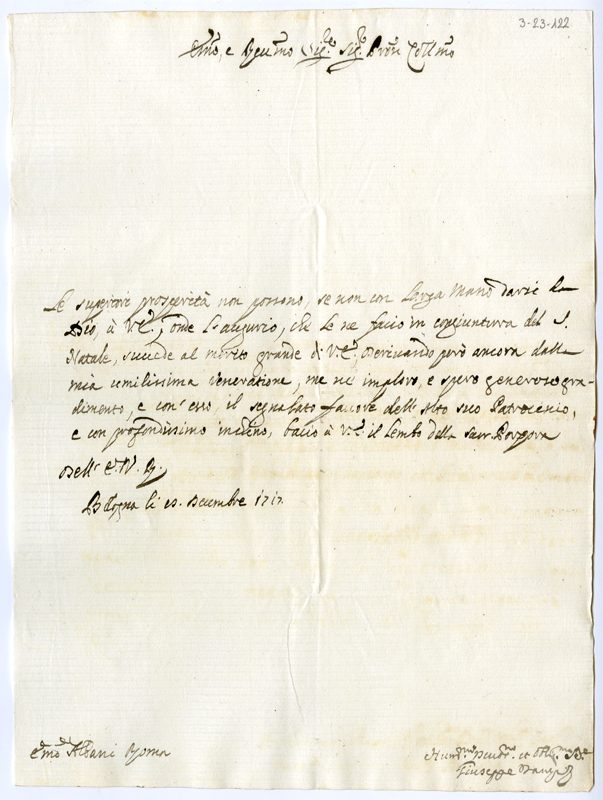 3-23-122
Em̃o, e Reṽmo Sig.re Sig.re Pron Coll.mo
Le superiori prosperità non possono, se non con larga mano darsi da
Dio, à V.E., onde l'augurio, che le ne facio in congiuntura del S.
Natale, succede al merito grande di V.E., Derivando però ancora dalla
mia umilissima venerazione, me ne imploro, e spero generoso gra-
dimento, e con esso, il segnalato favore dell'Alto suo Patrocinio,
e con profondissimo inchino, bacio à V.E. il lembo della Sacr. Porpora
Dell' E.V. R.
Bologna li 18. Decembre 1717.
Em̃o Albani Roma
Hum.mo Devot.mo et Obl.mo Se.
Giuseppe